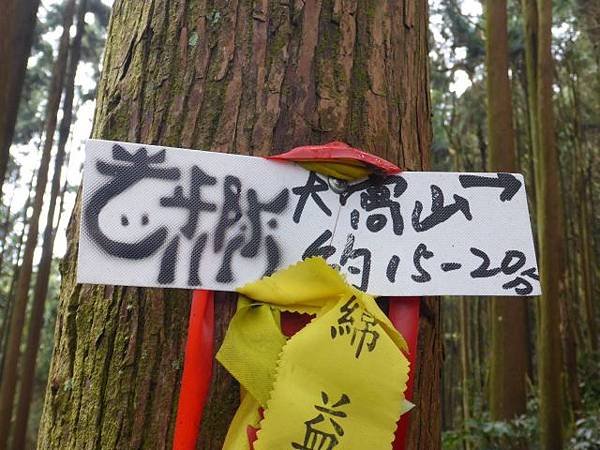 大窩山→
約15-20分
綿
益